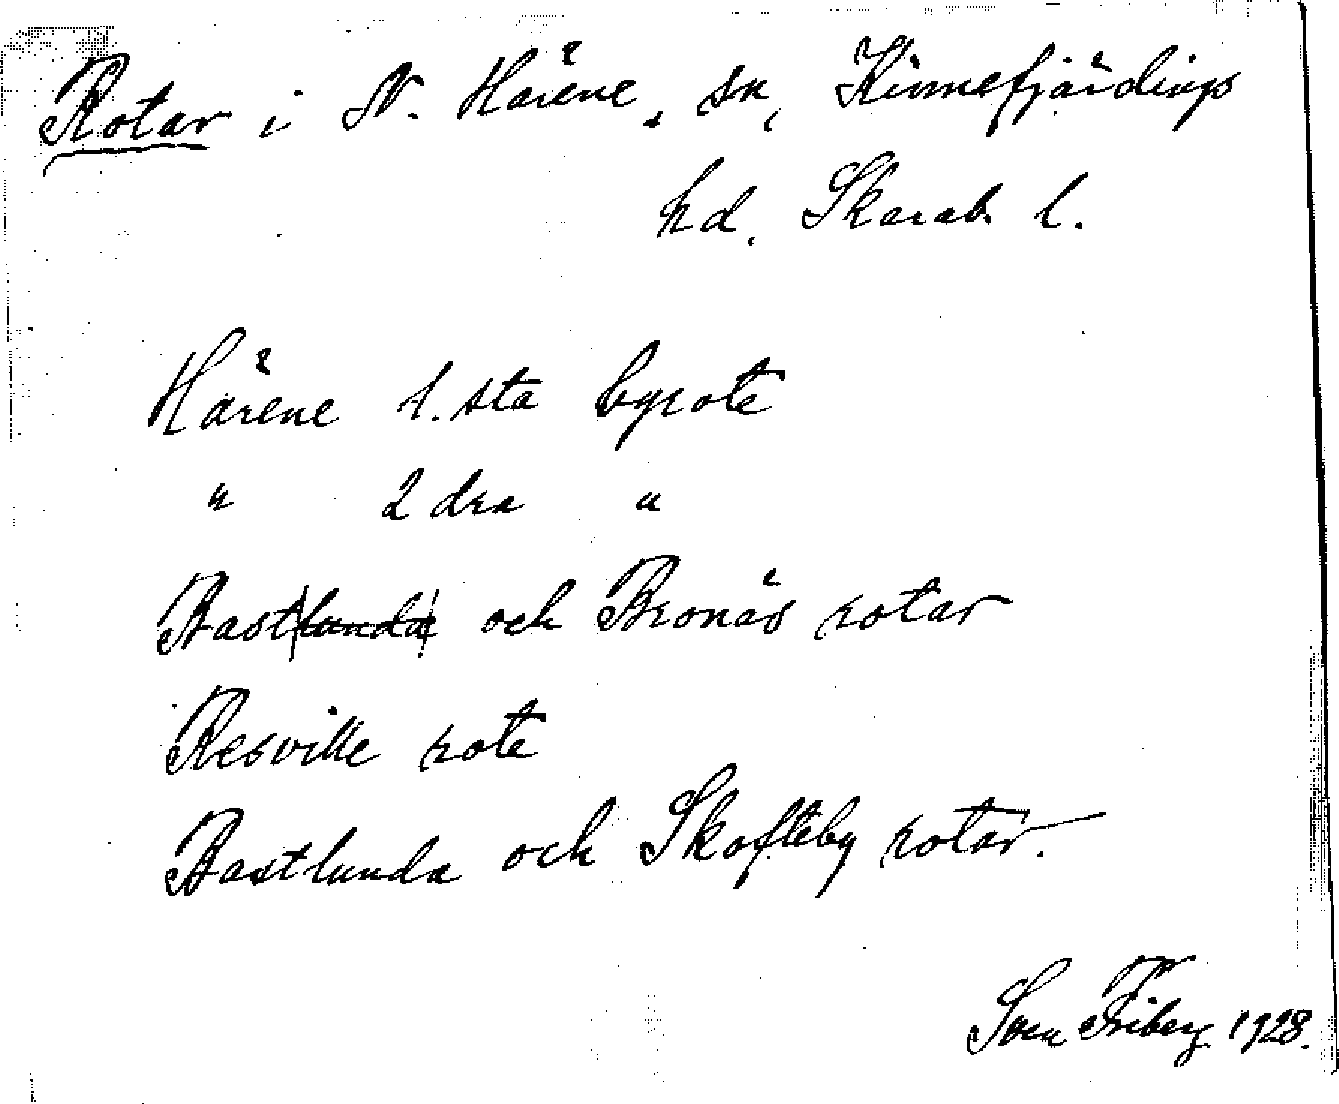 Rotar i N. Härene, sn, Kinnefjärdings
hd. Skarab. l.
Härene 1.sta byrote
" 2 dra "
Bastlunda och Bronäs rotar
Resville rote
Bastlunda och Skofteby rotar.
Sven Friberg 1928.